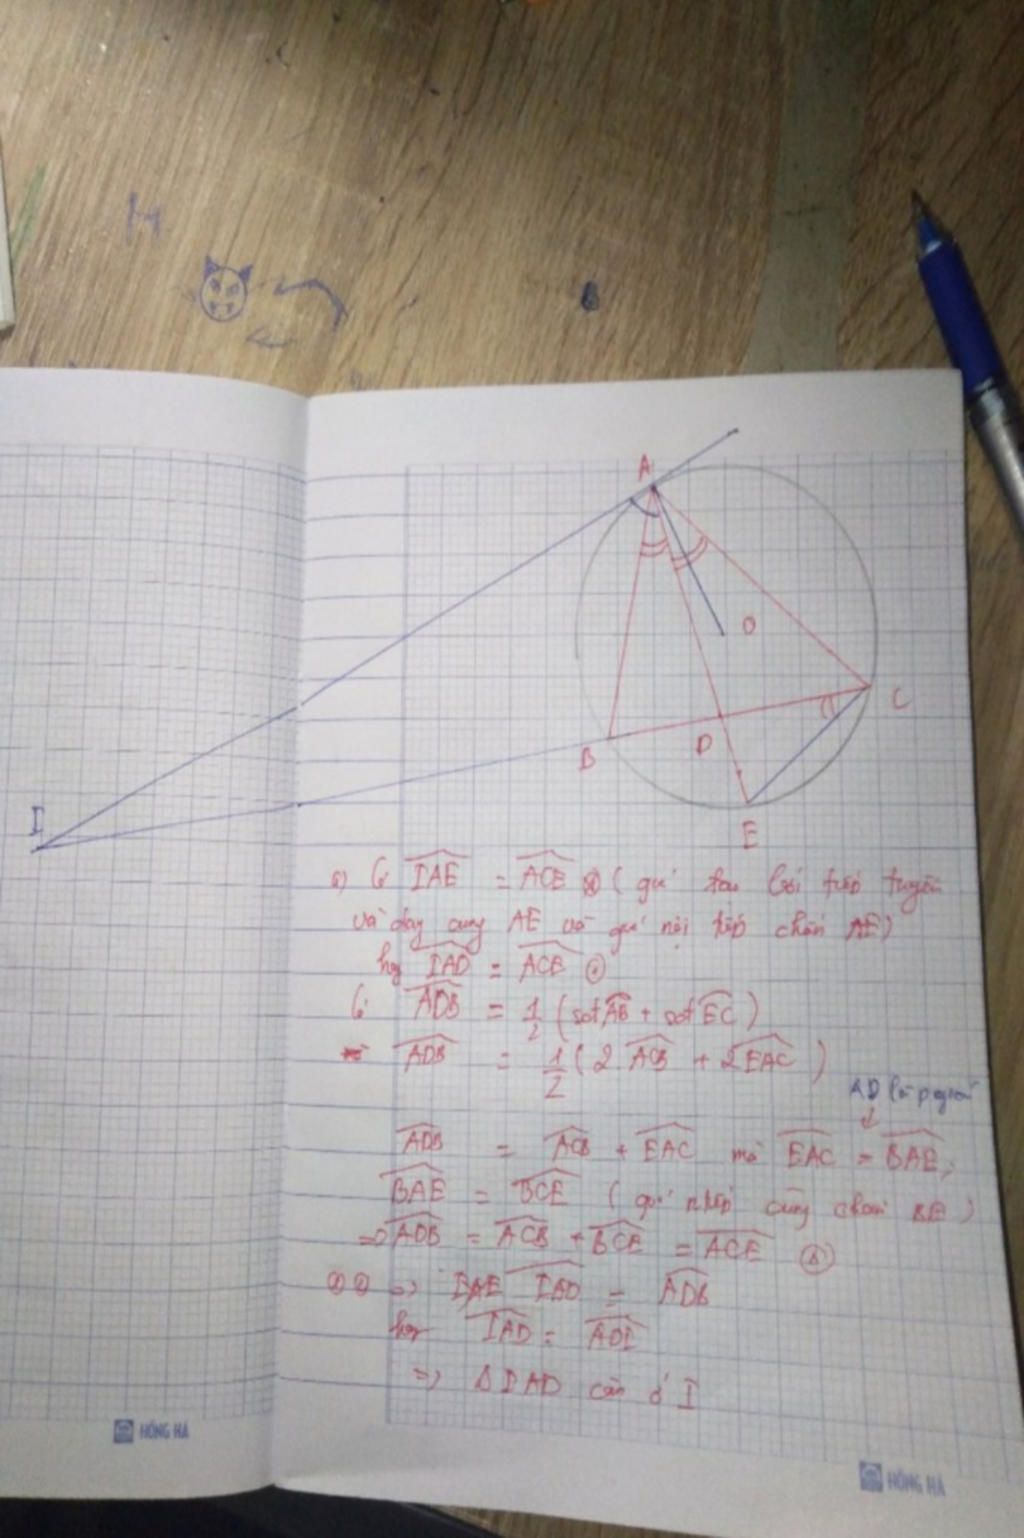 H
A
O
C
B
D
I
E
a) Có IAE = ACE (góc tạo bởi tiếp tuyến
và dây cung AE và góc nội tiếp chắn AE)
hay IAD = ACE ①
Có ADB = 1/2 (sđAB + sđEC)
ADB = 1/2 (2 ACB + 2EAC)
AD là p giác
ADB = ACB + EAC mà EAC = BAE,
BAE = BCE (góc ntiếp cùng chắn BE)
=> ADB = ACB + BCE = ACE ②
①② => IAD = ADB
hay IAD = ADI
=> Δ IAD cân ở I
HỒNG HÀ
HỒNG HÀ